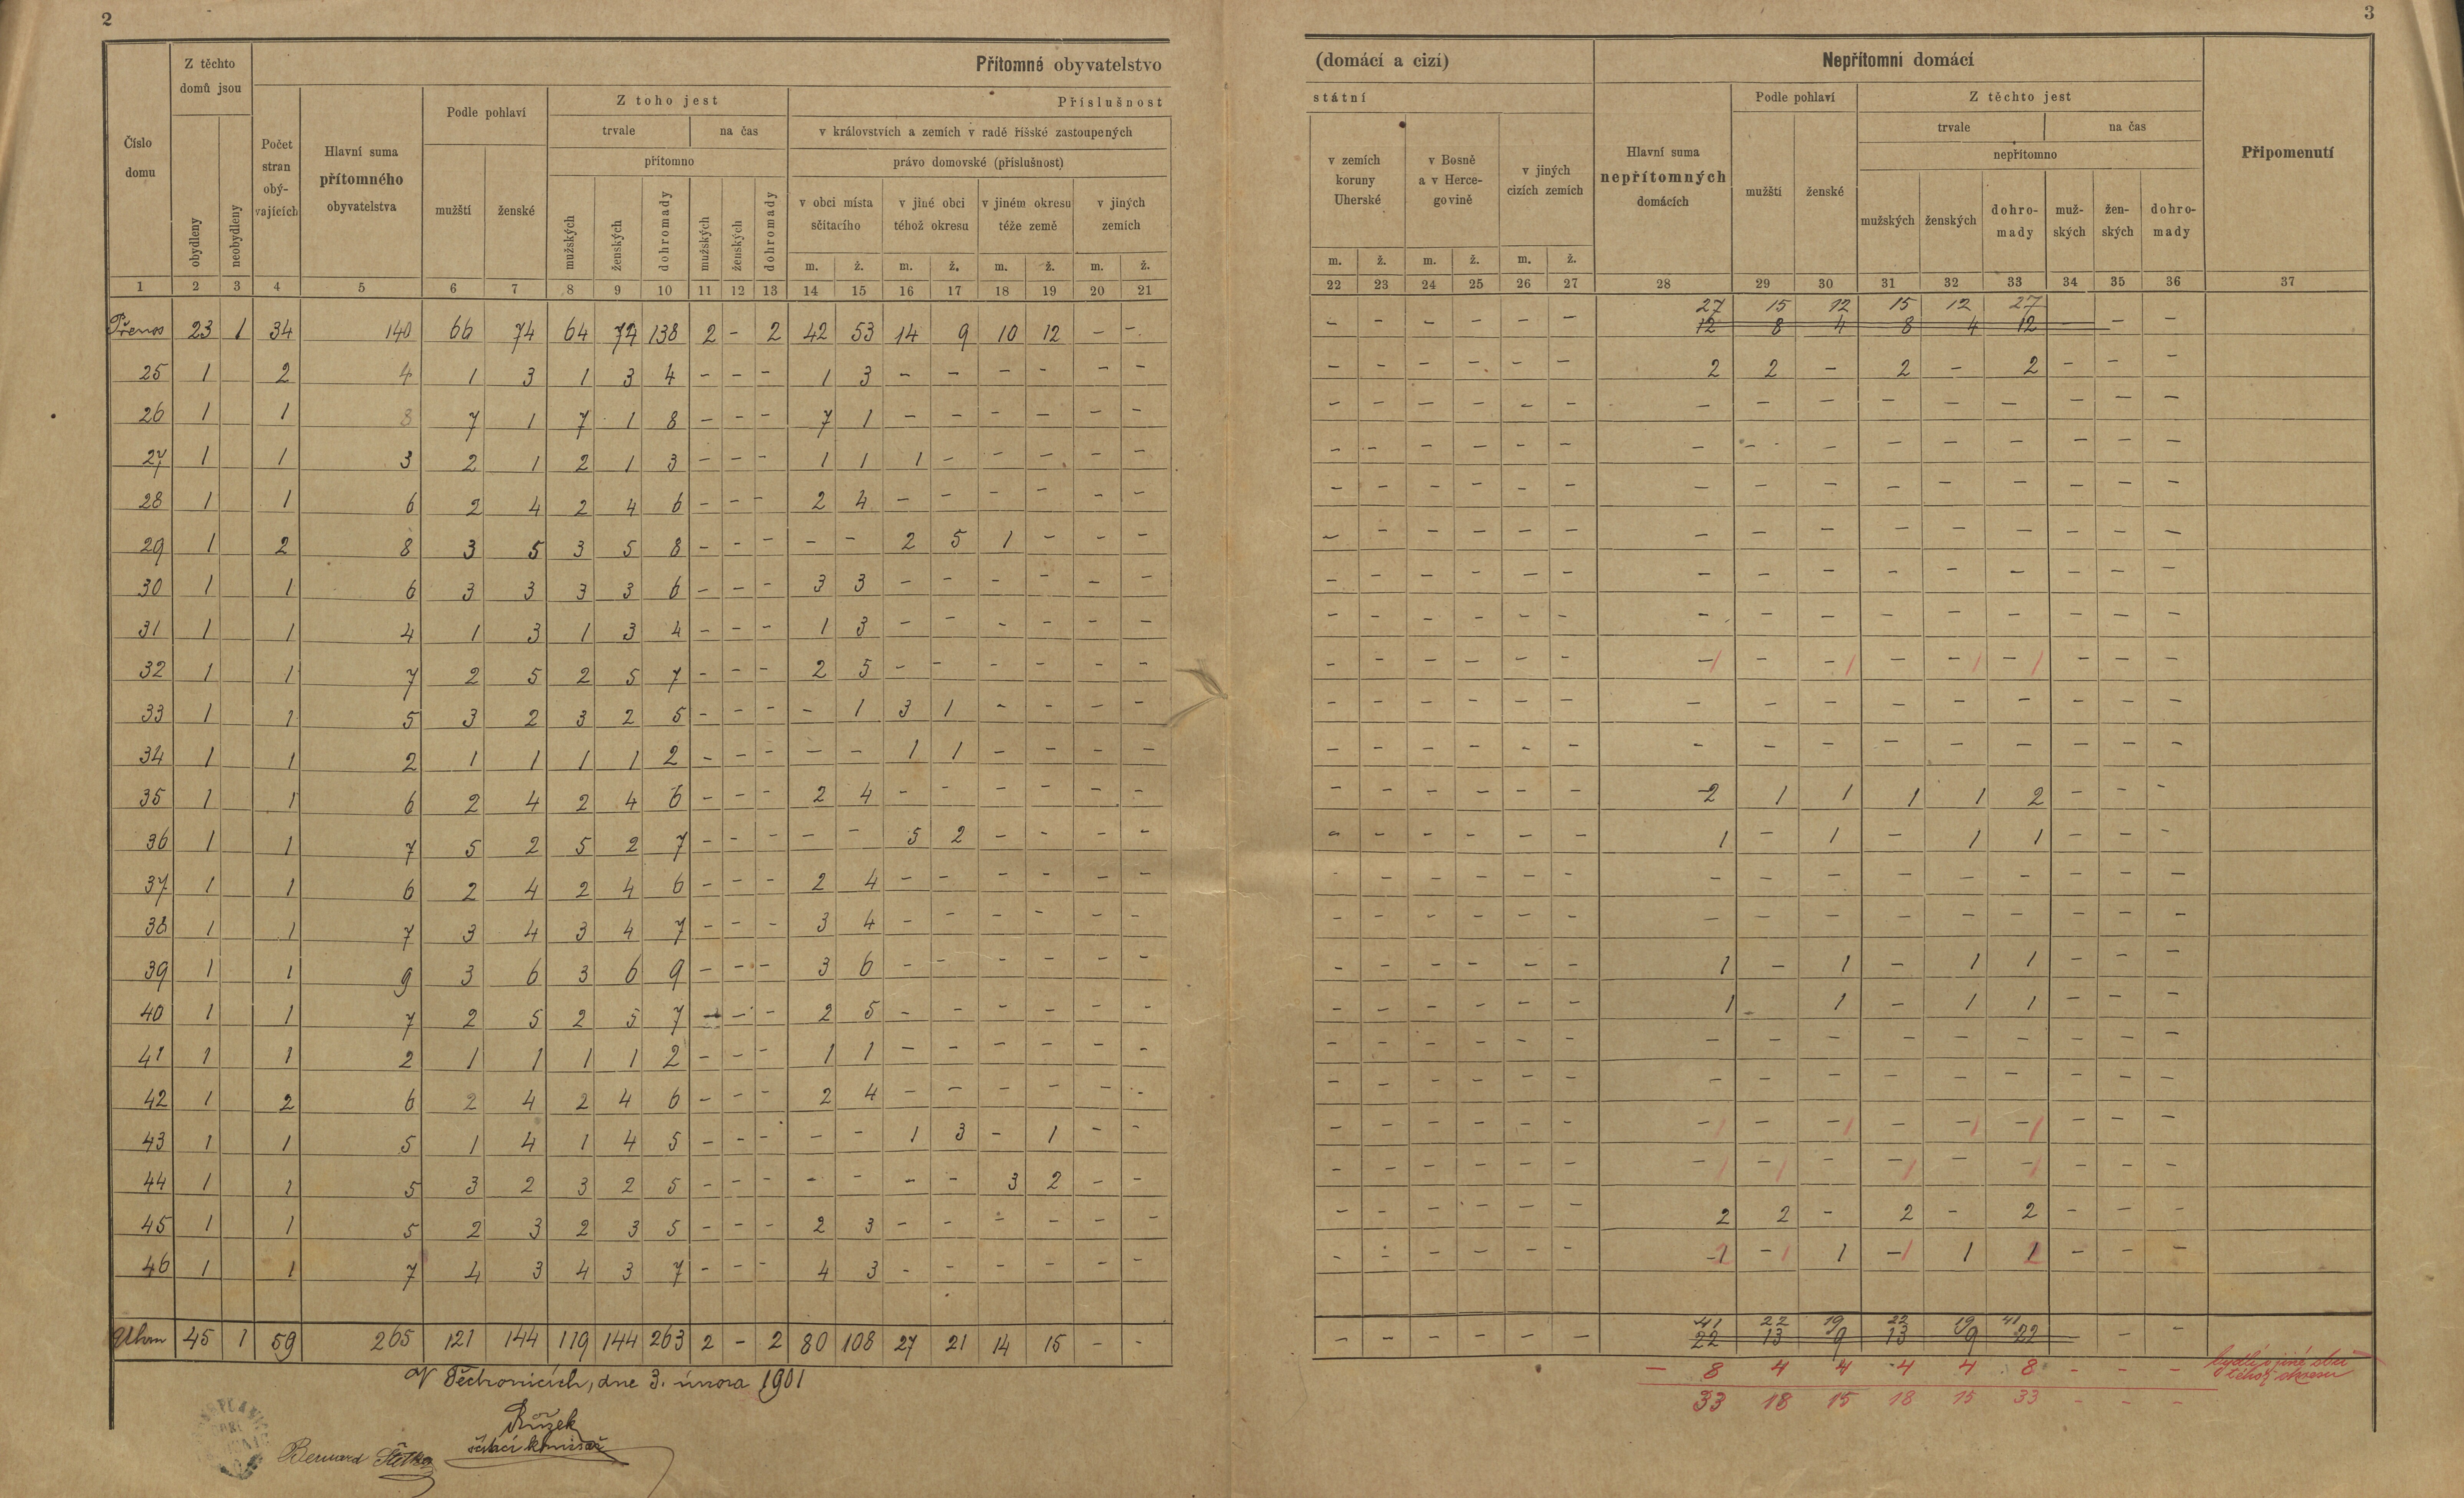 2
3
Přítomné obyvatelstvo (domácí a cizí) Nepřítomní domácí
Z těchto domů jsou
Podle pohlaví Z toho jest Příslušnost státní Podle pohlaví Z těchto jest
trvale na čas v královstvích a zemích v radě říšské zastoupených trvale na čas
přítomno právo domovské (příslušnost) nepřítomno
Číslo domu obydleny neobydleny Počet stran obý- vajících Hlavní suma přítomného obyvatelstva mužští ženské mužských ženských dohromady mužských ženských dohromady v obci místa sčítacího v jiné obci téhož okresu v jiném okresu téže země v jiných zemích v zemích koruny Uherské v Bosně a v Herce- govině v jiných cizích zemích Hlavní suma nepřítomných domácích mužští ženské mužských ženských dohro- mady muž- ských žen- ských dohro- mady Připomenutí
m. ž. m. ž. m. ž. m. ž. m. ž. m. ž. m. ž.
1 2 3 4 5 6 7 8 9 10 11 12 13 14 15 16 17 18 19 20 21 22 23 24 25 26 27 28 29 30 31 32 33 34 35 36 37
27 15 12 15 12 27
Přenos 23 1 34 140 66 74 64 74 138 2 - 2 42 53 14 9 10 12 - - - - - - - - 12 8 4 8 4 12 - - -
25 1 2 4 1 3 1 3 4 - - - 1 3 - - - - - - - - - - - - 2 2 - 2 - 2 - - -
26 1 1 8 7 1 7 1 8 - - - 7 1 - - - - - - - - - - - - - - - - - - - - -
27 1 1 3 2 1 2 1 3 - - - 1 1 1 - - - - - - - - - - - - - - - - - - - -
28 1 1 6 2 4 2 4 6 - - - 2 4 - - - - - - - - - - - - - - - - - - - - -
29 1 2 8 3 5 3 5 8 - - - - - 2 5 1 - - - - - - - - - - - - - - - - - -
30 1 1 6 3 3 3 3 6 - - - 3 3 - - - - - - - - - - - - - - - - - - - - -
31 1 1 4 1 3 1 3 4 - - - 1 3 - - - - - - - - - - - - - - - - - - - - -
32 1 1 7 2 5 2 5 7 - - - 2 5 - - - - - - - - - - - - -1 - -1 - -1 -1 - - -
33 1 1 5 3 2 3 2 5 - - - - 1 3 1 - - - - - - - - - - - - - - - - - - -
34 1 1 2 1 1 1 1 2 - - - - - 1 1 - - - - - - - - - - - - - - - - - - -
35 1 1 6 2 4 2 4 6 - - - 2 4 - - - - - - - - - - - - 2 1 1 1 1 2 - - -
36 1 1 7 5 2 5 2 7 - - - - - 5 2 - - - - - - - - - - 1 - 1 - 1 1 - - -
37 1 1 6 2 4 2 4 6 - - - 2 4 - - - - - - - - - - - - - - - - - - - - -
38 1 1 7 3 4 3 4 7 - - - 3 4 - - - - - - - - - - - - - - - - - - - - -
39 1 1 9 3 6 3 6 9 - - - 3 6 - - - - - - - - - - - - 1 - 1 - 1 1 - - -
40 1 1 7 2 5 2 5 7 - - - 2 5 - - - - - - - - - - - - 1 - 1 - 1 1 - - -
41 1 1 2 1 1 1 1 2 - - - 1 1 - - - - - - - - - - - - - - - - - - - - -
42 1 2 6 2 4 2 4 6 - - - 2 4 - - - - - - - - - - - - - - - - - - - - -
43 1 1 5 1 4 1 4 5 - - - - - 1 3 - 1 - - - - - - - - -1 - -1 - -1 -1 - - -
44 1 1 5 3 2 3 2 5 - - - - - - - 3 2 - - - - - - - - -1 -1 - -1 - -1 - - -
45 1 1 5 2 3 2 3 5 - - - 2 3 - - - - - - - - - - - - 2 2 - 2 - 2 - - -
46 1 1 7 4 3 4 3 7 - - - 4 3 - - - - - - - - - - - - 2 -1 1 -1 1 2 - - -
41 22 19 22 19 41
Úhrn 45 1 59 265 121 144 119 144 263 2 - 2 80 108 27 21 14 15 - - - - - - - - 22 13 9 13 9 22 - - -
- 8 4 4 4 4 8 - - - bydlí v jiné obci
téhož okresu
33 18 15 18 15 33 - - -
V Těchonicích, dne 3. února 1901
Růzek
sčítací komisař
Bernard